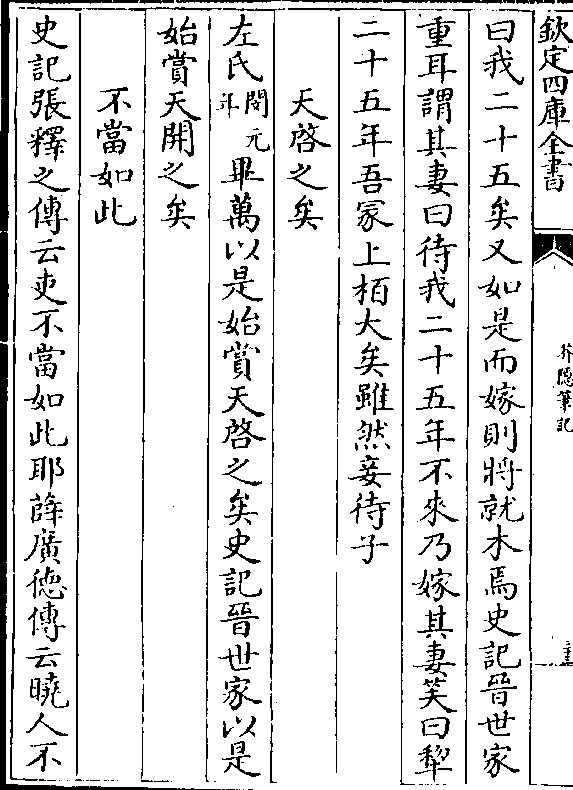 欽定四庫全書
芥隱筆記
曰我二十五矣又如是而嫁則將就木焉史記晉世家
重耳謂其妻曰待我二十五年不來乃嫁其妻笑曰犂
二十五年吾冡上栢大矣雖然妾待子
天啓之矣
左氏閔元年畢萬以是始賞天啓之矣史記晉世家以是
始賞天開之矣
不當如此
史記張釋之傳云吏不當如此耶薛廣徳傳云曉人不